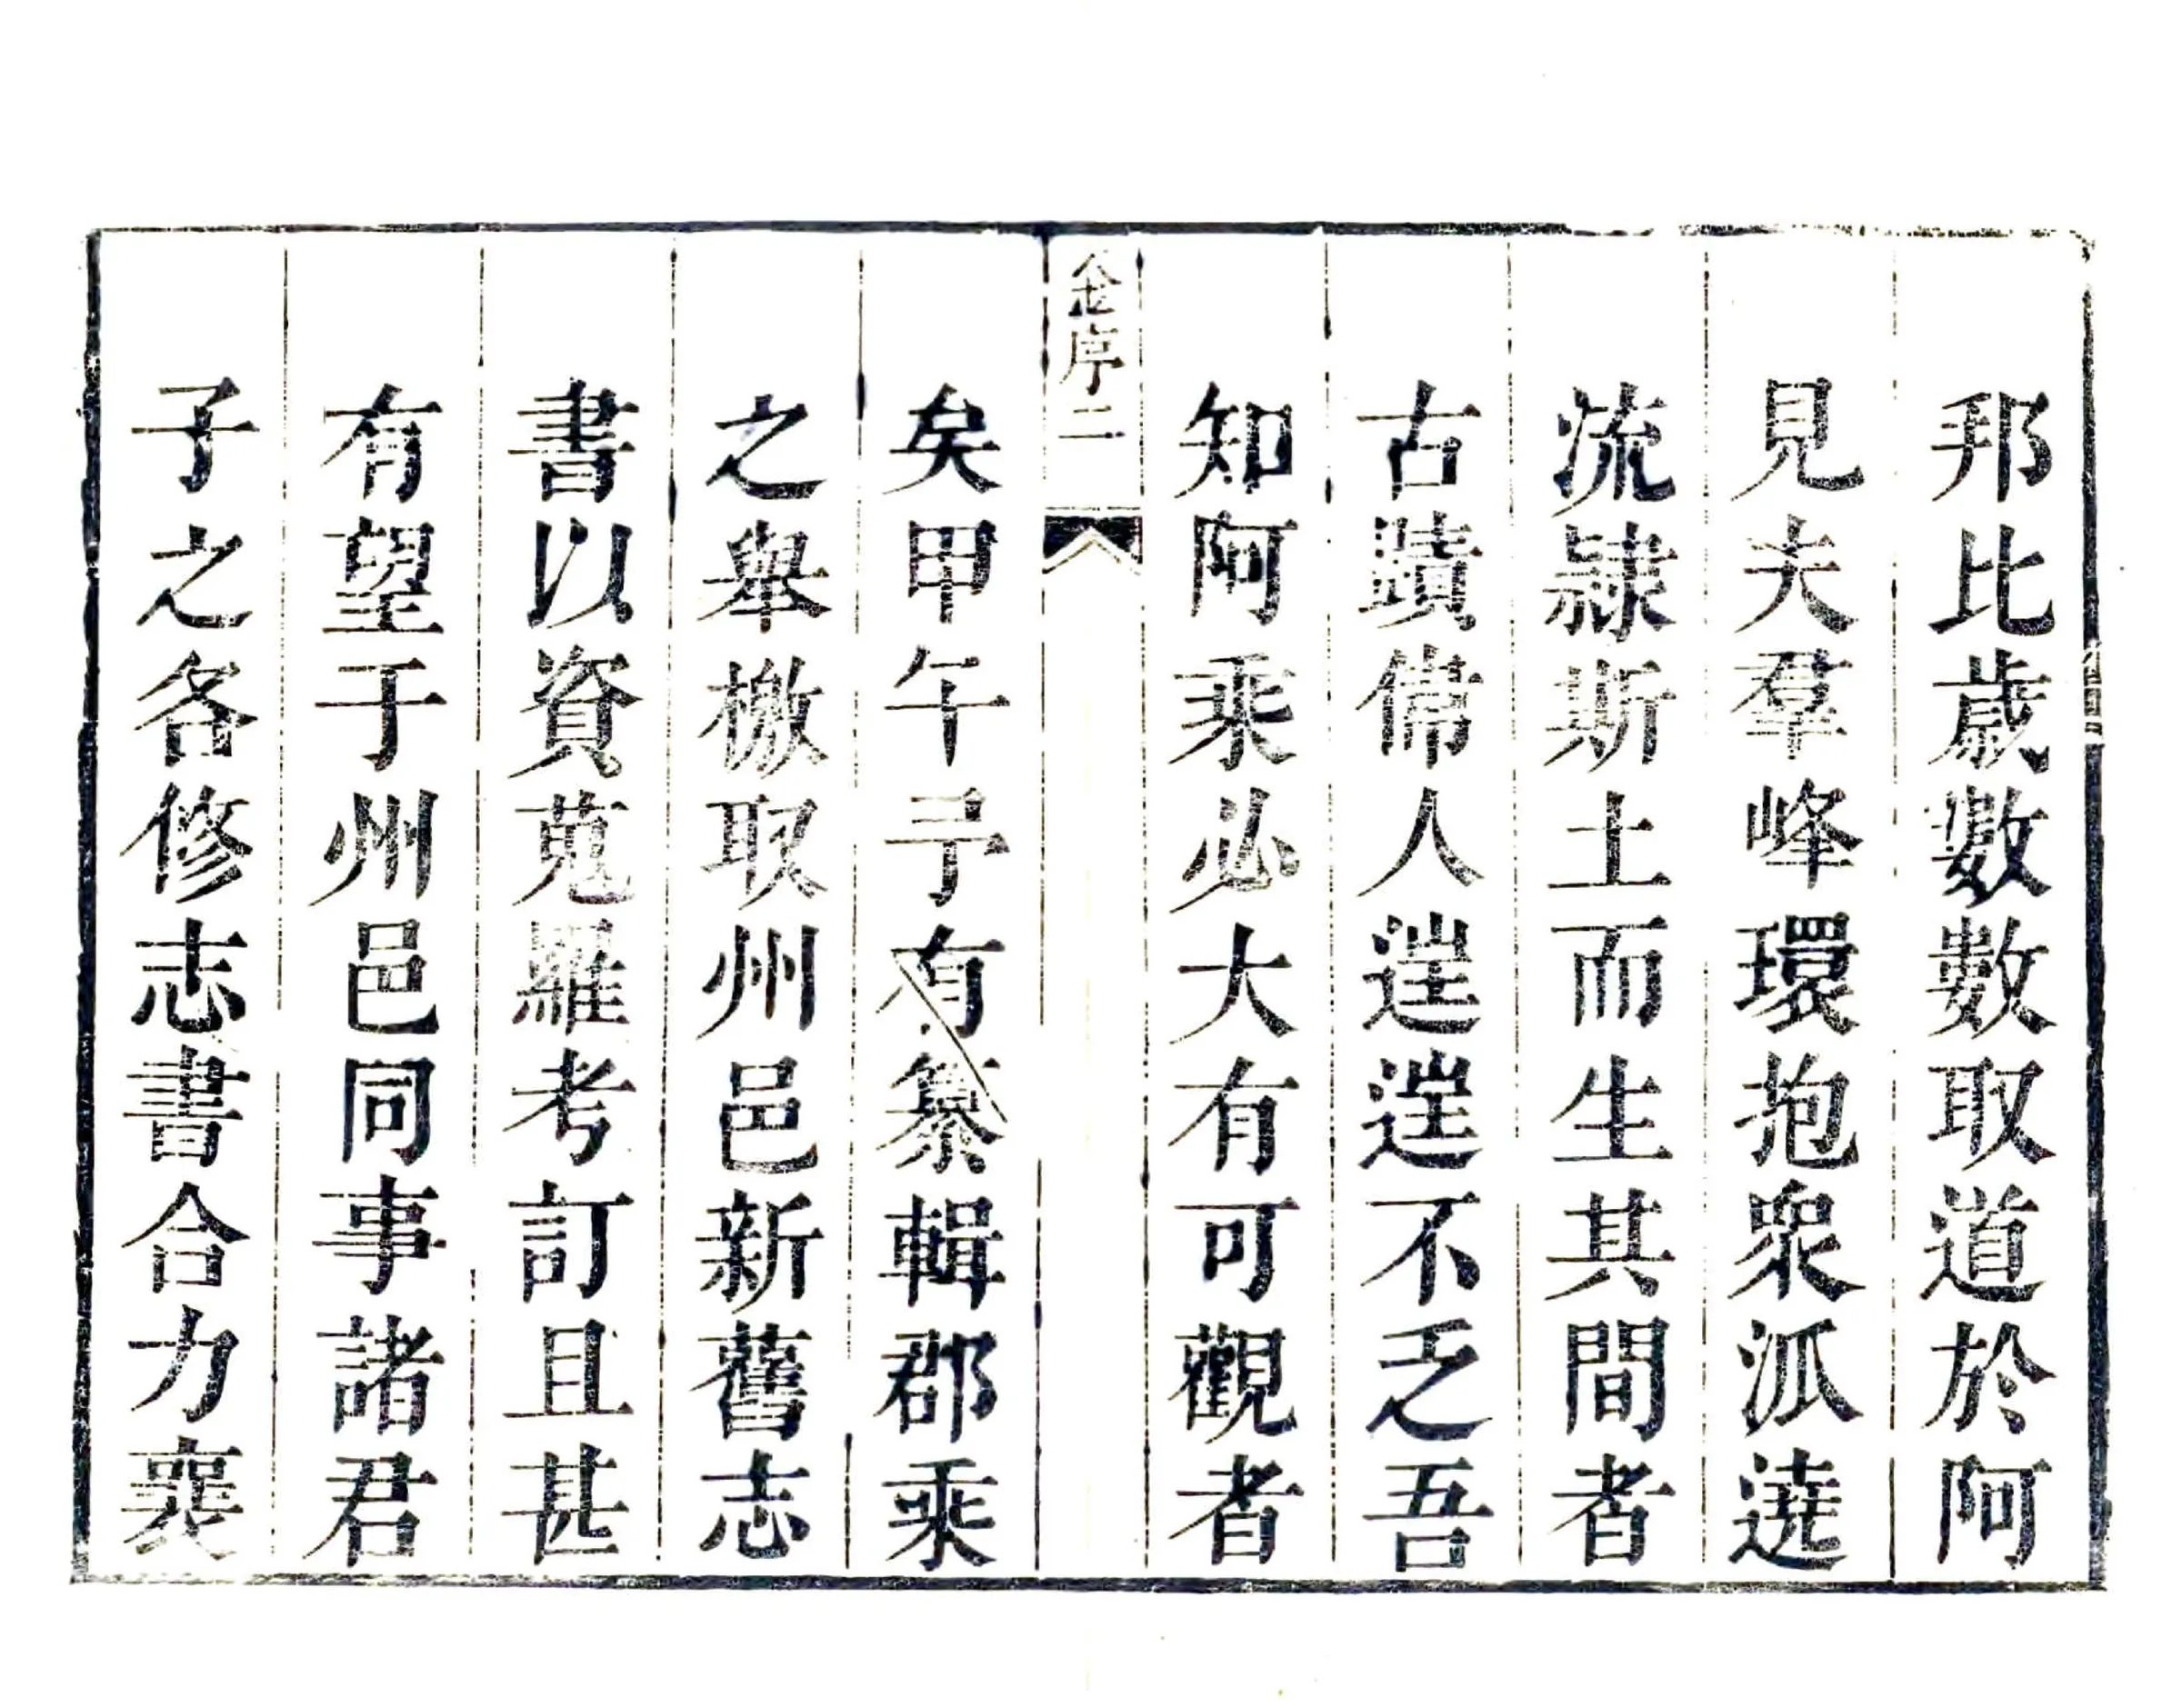 邦比歲數數取道於阿
見夫羣峰環抱衆泒遶
流隷斯土而生其間者
古蹟偉人往往不乏吾
知阿乘必大有可觀者
金序二
矣甲午予有纂輯郡乘
之舉檄取州邑新舊志
書以資蒐羅考訂且甚
有望于州邑同事諸君
子之各修志書合力襄